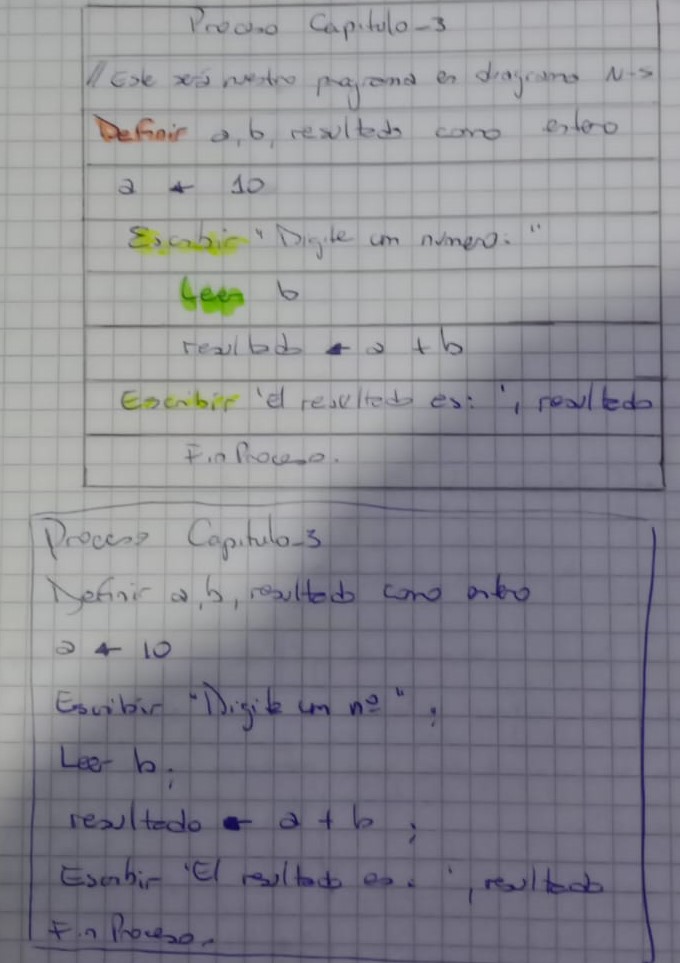 Proceso Capitulo_3
// Este será nuestro programa en diagrama N-S
Definir a, b, resultado como entero
a ← 10
Escribir "Digite un numero: "
Leer b
resultado ← a + b
Escribir 'el resultado es: ', resultado
FinProceso.
Proceso Capitulo_3
Definir a, b, resultado como entero
a ← 10
Escribir "Digite un nº " ;
Leer b ;
resultado ← a + b ;
Escribir 'El resultado es: ', resultado
FinProceso.